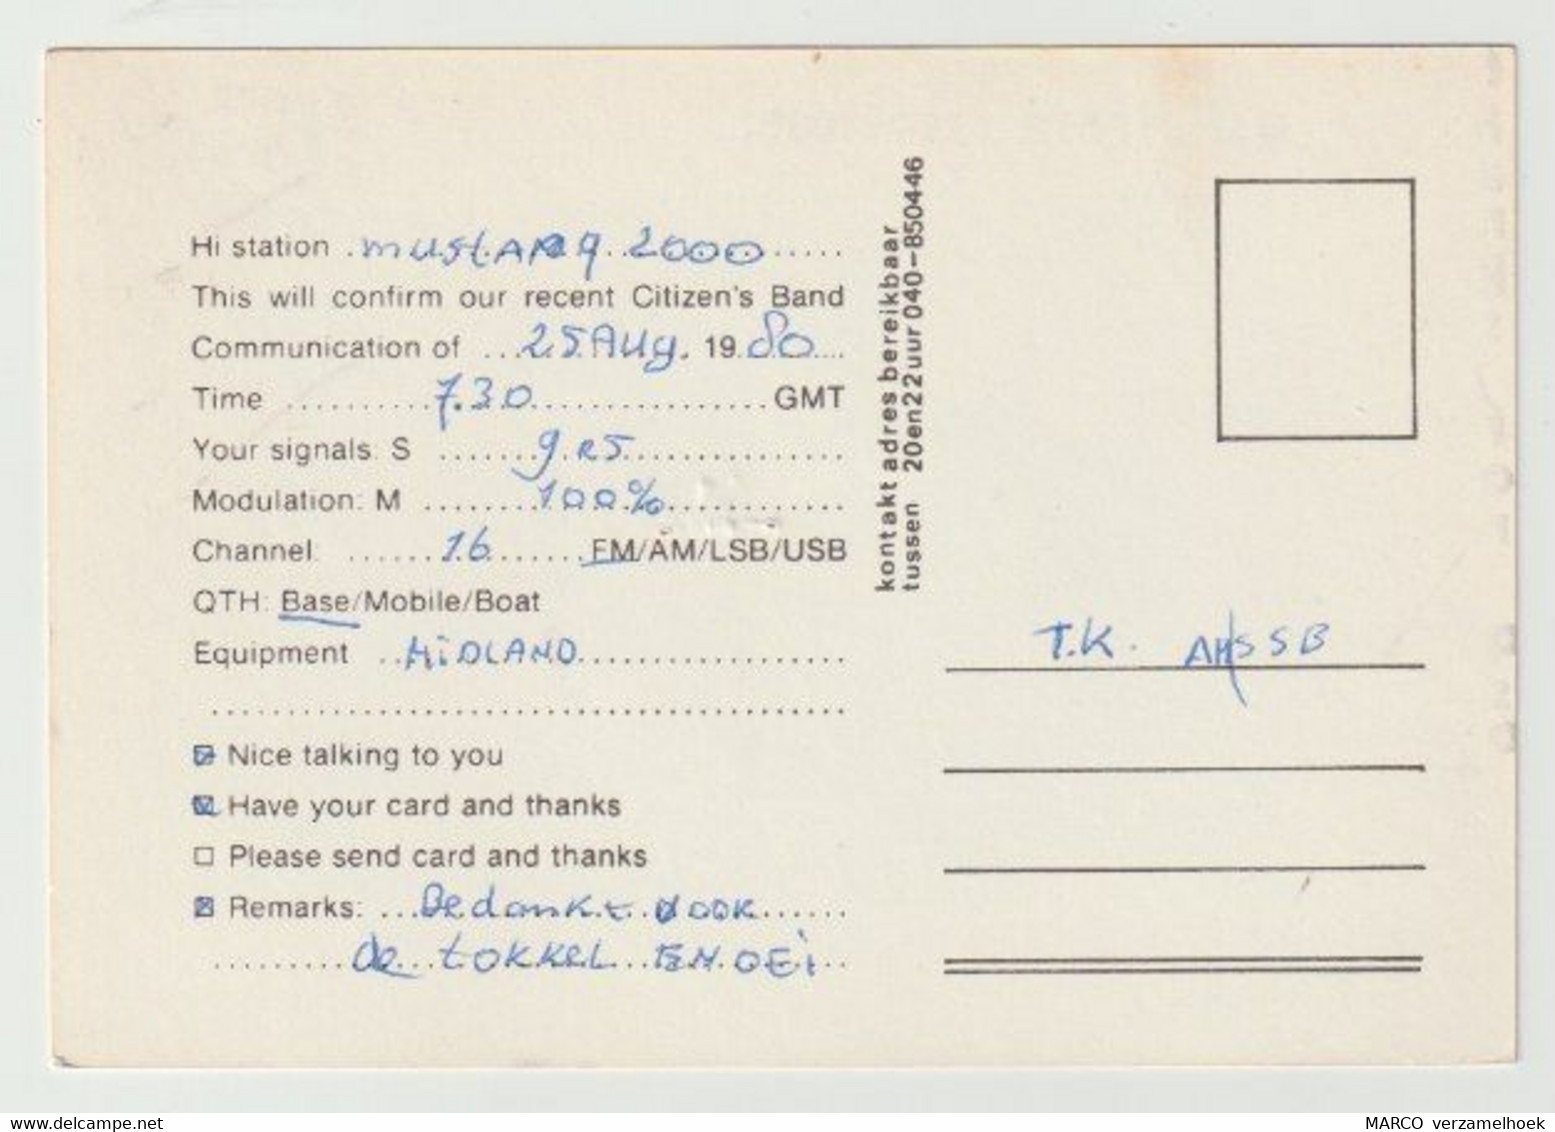 Hi station mustang 2000
This will confirm our recent Citizen's Band
Communication of 25 Aug. 1980
Time 7.30 GMT
Your signals: S 9 R5
Modulation: M 100%
Channel: 16 FM/AM/LSB/USB
QTH: Base/Mobile/Boat
Equipment MiDLAND
Nice talking to you
Have your card and thanks
Please send card and thanks
Remarks: Bedankt voor
de tokkel EN OEi
kontakt adres bereikbaar
tussen 20en22uur 040-850446
T.K.
MARCO verzamelhoek